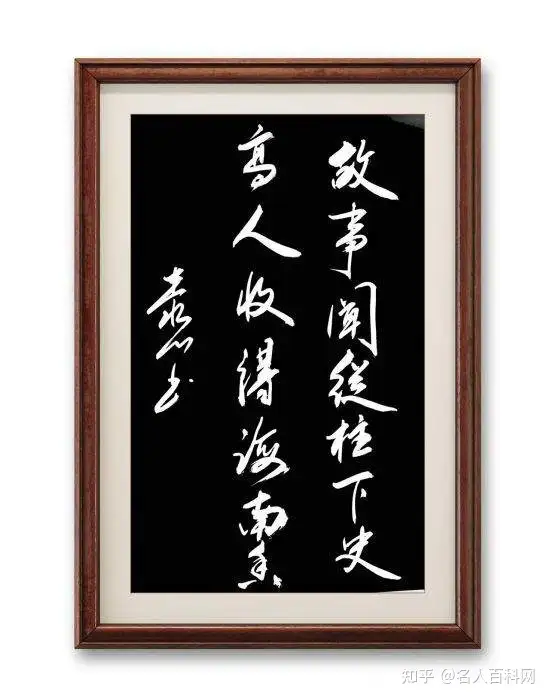 故事闻從柱下史
高人收得海南香
袁
知乎 @名人百科网